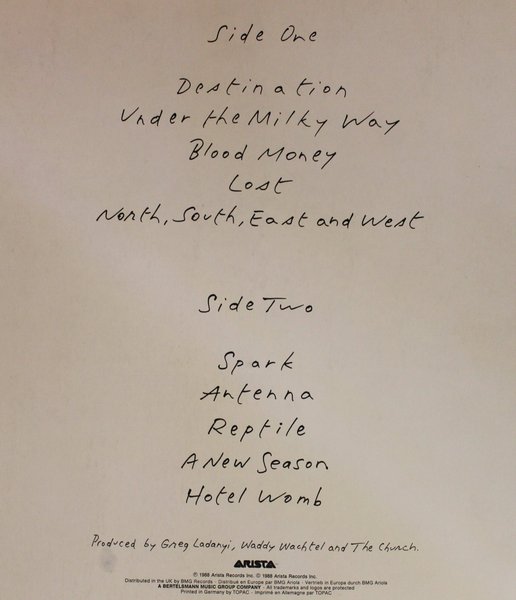 Side One
Destination
Under the Milky Way
Blood Money
Lost
North, South, East and West
Side Two
Spark
Antenna
Reptile
A New Season
Hotel Womb
Produced by Greg Ladanyi, Waddy Wachtel and The Church.
ARISTA
℗ 1988 Arista Records Inc. © 1988 Arista Records Inc.
Distributed in the UK by BMG Records · Distribué en Europe par BMG Ariola · Vertrieb in Europa durch BMG Ariola
A BERTELSMANN MUSIC GROUP COMPANY · All trademarks and logos are protected
Printed in Germany by TOPAC · Imprimé en Allemagne par TOPAC